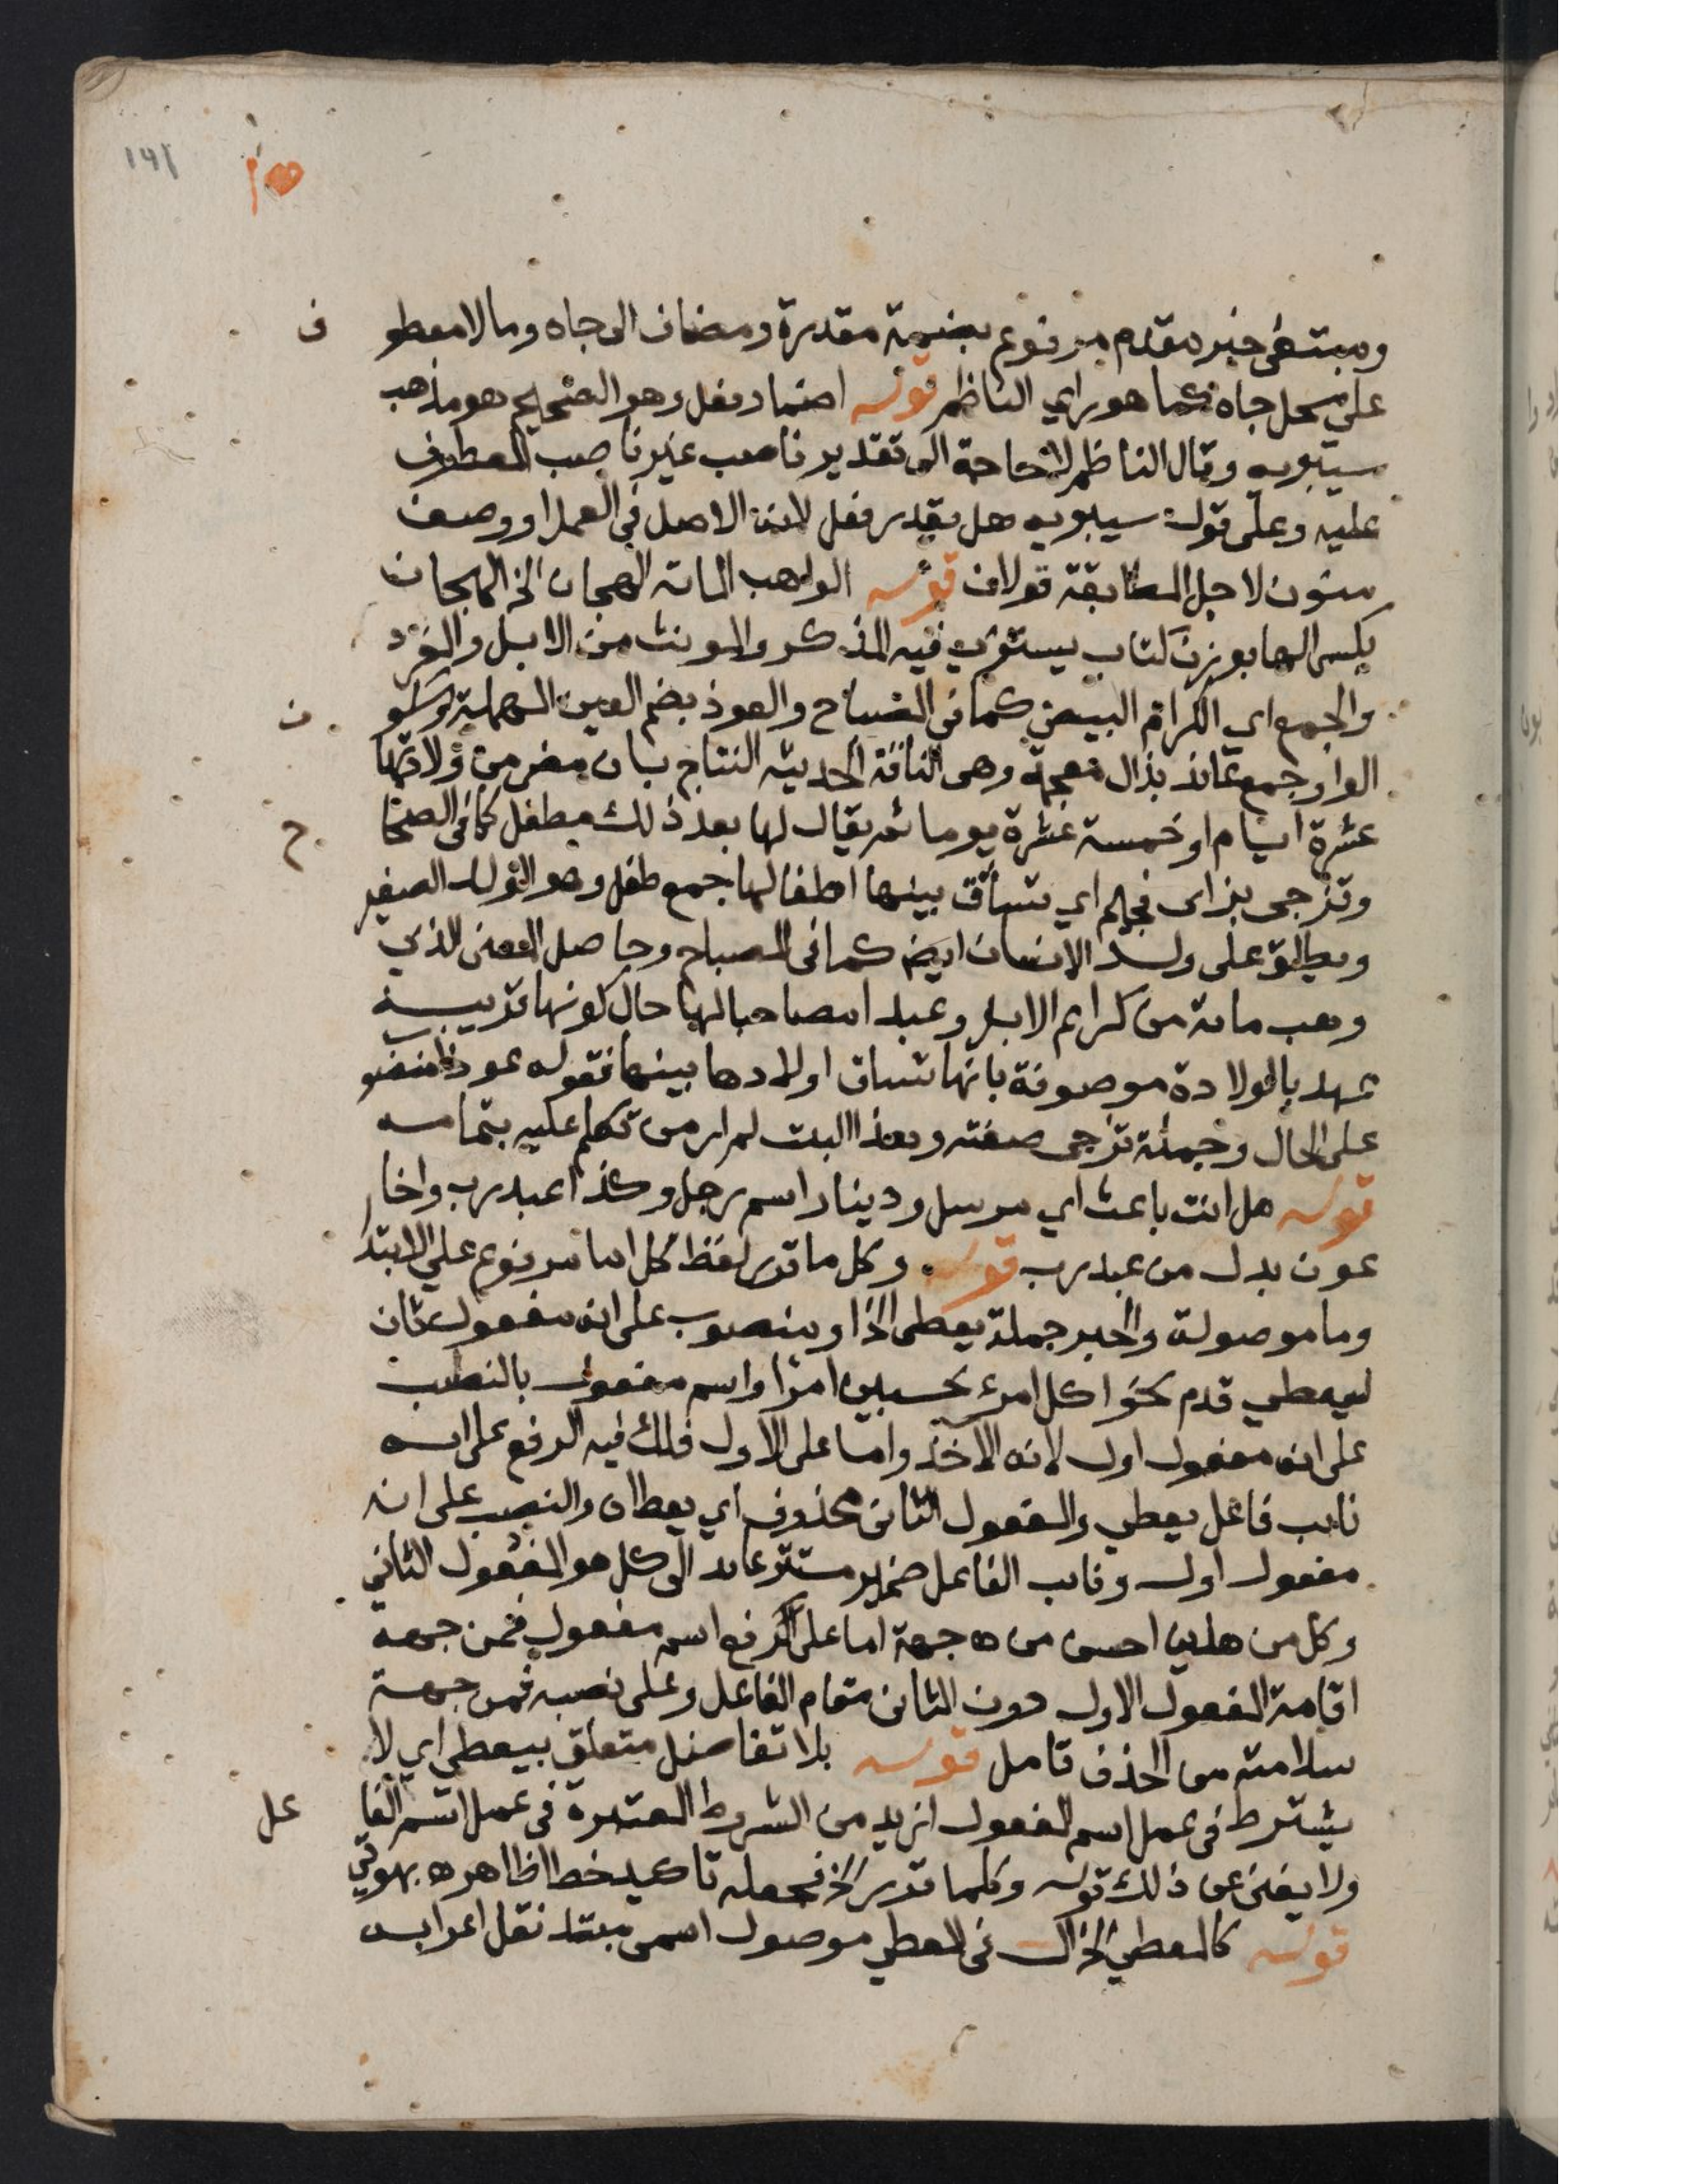 ١٩١
ومبتغى خبر مقدم مرفوع بضمة مقدرة ومضاف الى جاه ومالا معطو ف
على محل جاه كما هو راي الناظم قوله اضمار فعل وهو الصحيح هو مذهب
سيبويه وقال الناظم لا حاجة الى تقدير ناصب غير ناصب المعطوف
عليه وعلى قول سيبويه هل يقدر فعل لانه الاصل في العمل او وصف
منون لاجل المطابقة قولان قوله الواهب الماته الهجان الخ الهجان
بكسر الها بوزن كتاب يستوي فيه المذكر والمونث من الابل والمفرد
والجمع اي الكرام البيض كما في المصباح والعوذ بضم العين المهملة وسكو ن
الواو جمع عائذ بذال معجمة وهى الناقة الحديثه النتاج بان مضى من ولادتها
عشرة ايام او خمسة عشرة يوما ثم يقال لها بعد ذلك مطفل كما في الصحا ح
وتزجى بزاى فجيم اي تساق بينها اطفالها جمع طفل وهو الولد الصغير
ويطلق على ولد الانسان ايضا كما في المصباح وحاصل المعنى الذي
وهب مائة من كرايم الابل وعبدا مصاحبا لها حال كونها قريبة
عهد بالولادة موصوفة بانها تساق اولادها بينها فقوله عوذا منصو ب
على الحال وجملة تزجى صفته وهذا البيت لم ار من تكلم عليه بتمامه
قوله هل انت باعث اي مرسل ودينار اسم رجل وكذا عبد رب واخا
عون بدل من عبد رب قوله وكل ما قرر لفظ كل اما مرفوع على الابتدا
وما موصولة والخبر جملة يعطى الخ او منصوب على انه مفعول ثان
ليعطي قدم نحو اكل امرء تحسبين امرا واسم مفعول بالنصب
على انه مفعول اول لانه الاخذ واما على الاول فلك فيه الرفع على انه
نايب فاعل يعطي والمفعول الثاني محذوف اي يعطاه والنصب على انه
مفعول اول ونايب الفاعل ضمير مستتر عايد الى كل هو المفعول الثاني
وكل من هذين احسن من جهة اما على الرفع اسم مفعول فمن جهة
اقامة المفعول الاول دون الثاني مقام الفاعل وعلى نصبه فمن جهة
سلامته من الحذف تامل قوله بلا تفاضل متعلق بيعطى اي لا
يشترط في عمل اسم المفعول ازيد من الشروط المعتبرة في عمل اسم الفا عل
ولا يغنى عن ذلك قوله وكلما قرر الخ فجعله تاكيد خطا ظاهر ه بهوتي
قوله كالمعطي الخ ال في المعطي موصول اسمى مبتدا نقل اعرابه